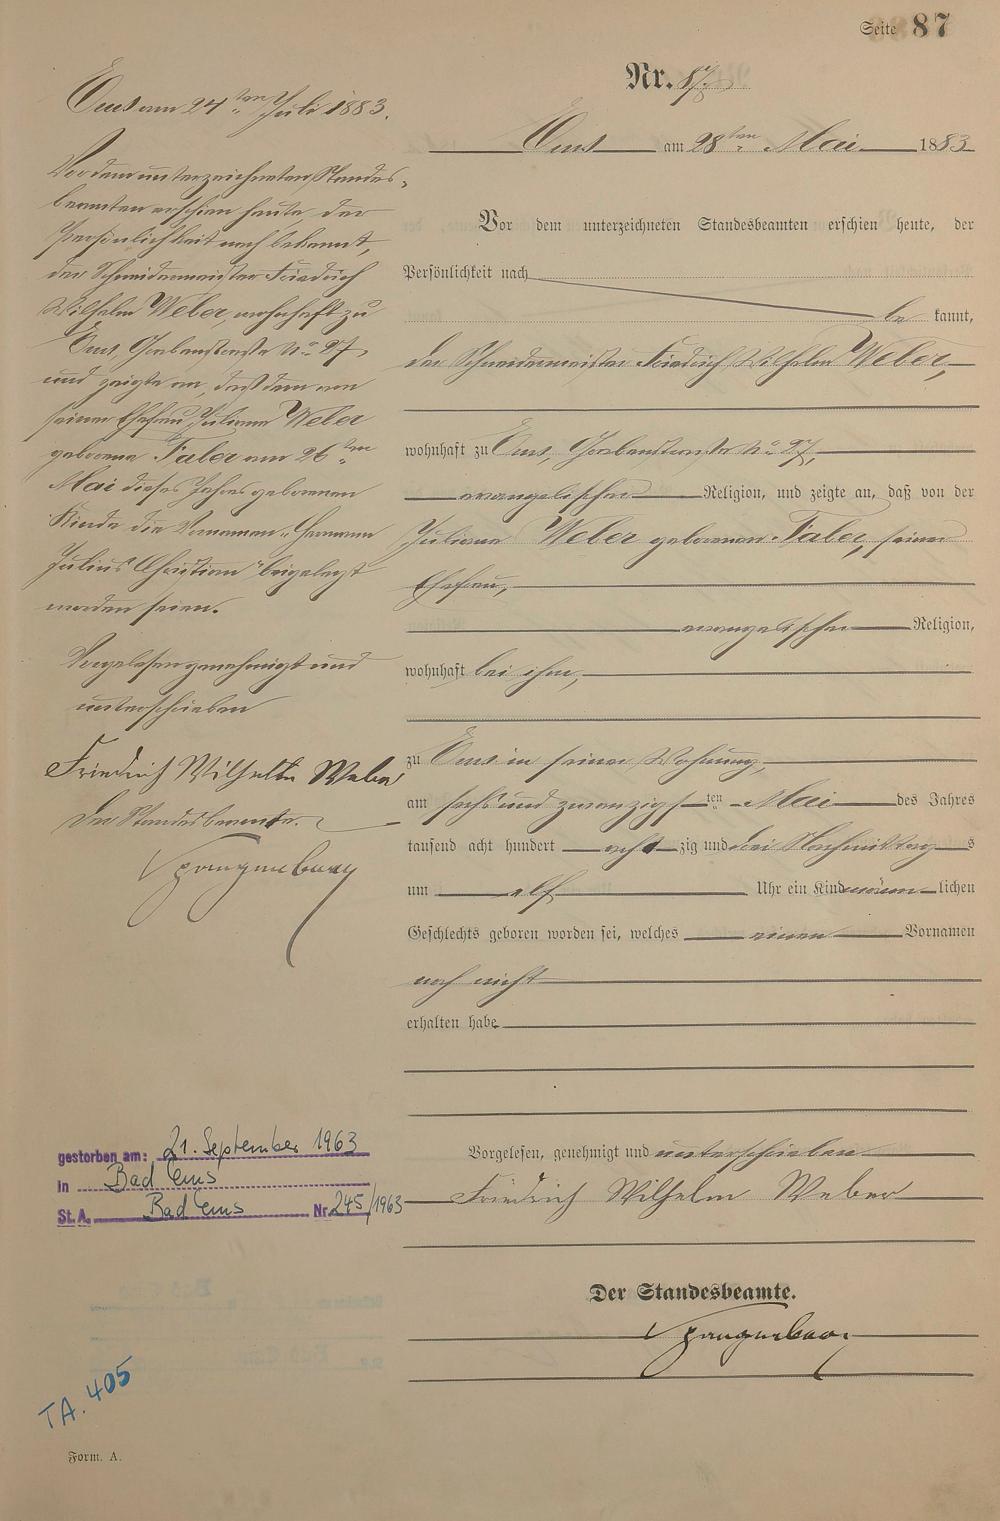 Seite 87
Nr. 87.
Ems am 28ten Mai 1883
Vor dem unterzeichneten Standesbeamten erschien heute, der
Persönlichkeit nach
be kannt,
der Schneidermeister Friedrich Wilhelm Weber,
wohnhaft zu Ems, Grabenstraße No. 27,
evangelischer Religion, und zeigte an, daß von der
Juliane Weber geborenen Faber, seiner
Ehefrau,
evangelischer Religion,
wohnhaft bei ihm,
zu Ems in seiner Wohnung,
am sechsundzwanzigsten Mai des Jahres
tausend acht hundert achtzig und drei Nachmittags
um elf Uhr ein Kind männlichen
Geschlechts geboren worden sei, welches einen Vornamen
noch nicht
erhalten habe
Vorgelesen, genehmigt und unterschrieben
Friedrich Wilhelm Weber
Der Standesbeamte.
Spangenberg
Ems am 24ten Juli 1883.
Vor dem unterzeichneten Standes-
beamten erschien heute, der
Persönlichkeit nach bekannt,
der Schneidermeister Friedrich
Wilhelm Weber, wohnhaft zu
Ems, Grabenstraße No. 27,
und zeigte an, daß dem von
seiner Ehefrau Juliane Weber
geborene Faber am 26ten
Mai dieses Jahres geborenen
Kinde die Vornamen „Hermann
Julius Christian" beigelegt
worden seien.
Vorgelesen genehmigt und
unterschrieben
Friedrich Wilhelm Weber
Der Standesbeamte.
Spangenberg
gestorben am: 21. September 1963
in Bad Ems
St. A. Bad Ems Nr. 245/1963
TA. 405
Form. A.